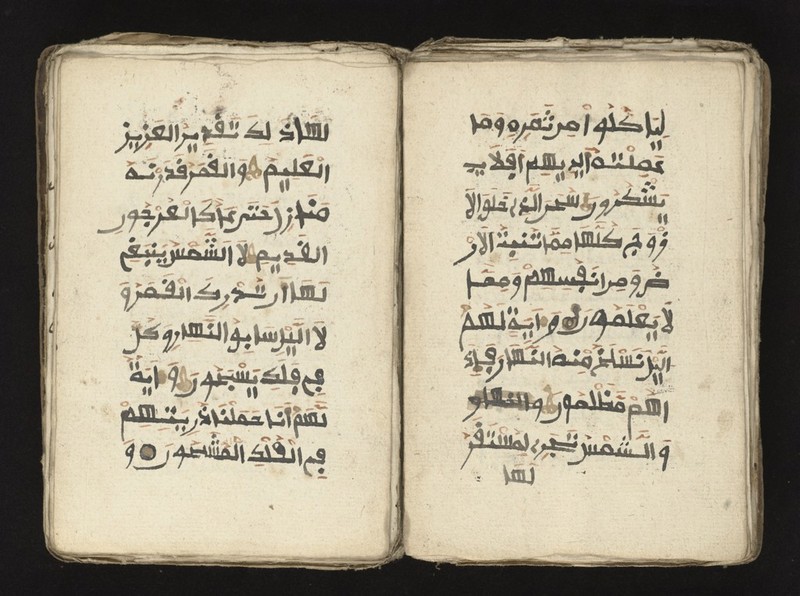 لِيَاكُلُوا مِن ثَمَرِهِ وَمَا
عَمِلَتْهُ أَيْدِيهِمْ أَفَلَا
يَشْكُرُونَ سُبْحَٰنَ الذِي خَلَقَ الَا
زْوَٰجَ كُلَّهَا مِمَّا تُنبِتُ الَارْ
ضُ وَمِنَ انفُسِهِمْ وَمِمَّا
لَا يَعْلَمُونَ وَءَايَةٌ لَّهُمُ
اليْلُ نَسْلَخُ مِنْهُ النَّهَارَ فَإِذَ
ا هُم مُّظْلِمُونَ
وَالشَّمْسُ تَجْرِي لِمُسْتَقَرٍّ
لَّهَا
لَّهَا ذَٰلِكَ تَقْدِيرُ العَزِيزِ
العَلِيمِ وَالقَمَرُ قَدَّرْنَٰهُ
مَنَازِلَ حَتَّىٰ عَادَ كَالعُرْجُونِ
القَدِيمِ لَا الشَّمْسُ يَنبَغِي
لَهَا أَن تُدْرِكَ القَمَرَ وَ
لَا اليْلُ سَابِقُ النَّهَارِ وَكُلٌّ
فِي فَلَكٍ يَسْبَحُونَ وَءَايَةٌ
لَّهُمْ أَنَّا حَمَلْنَا ذُرِّيَّٰتِهِمْ
فِي الفُلْكِ المَشْحُونِ وَ